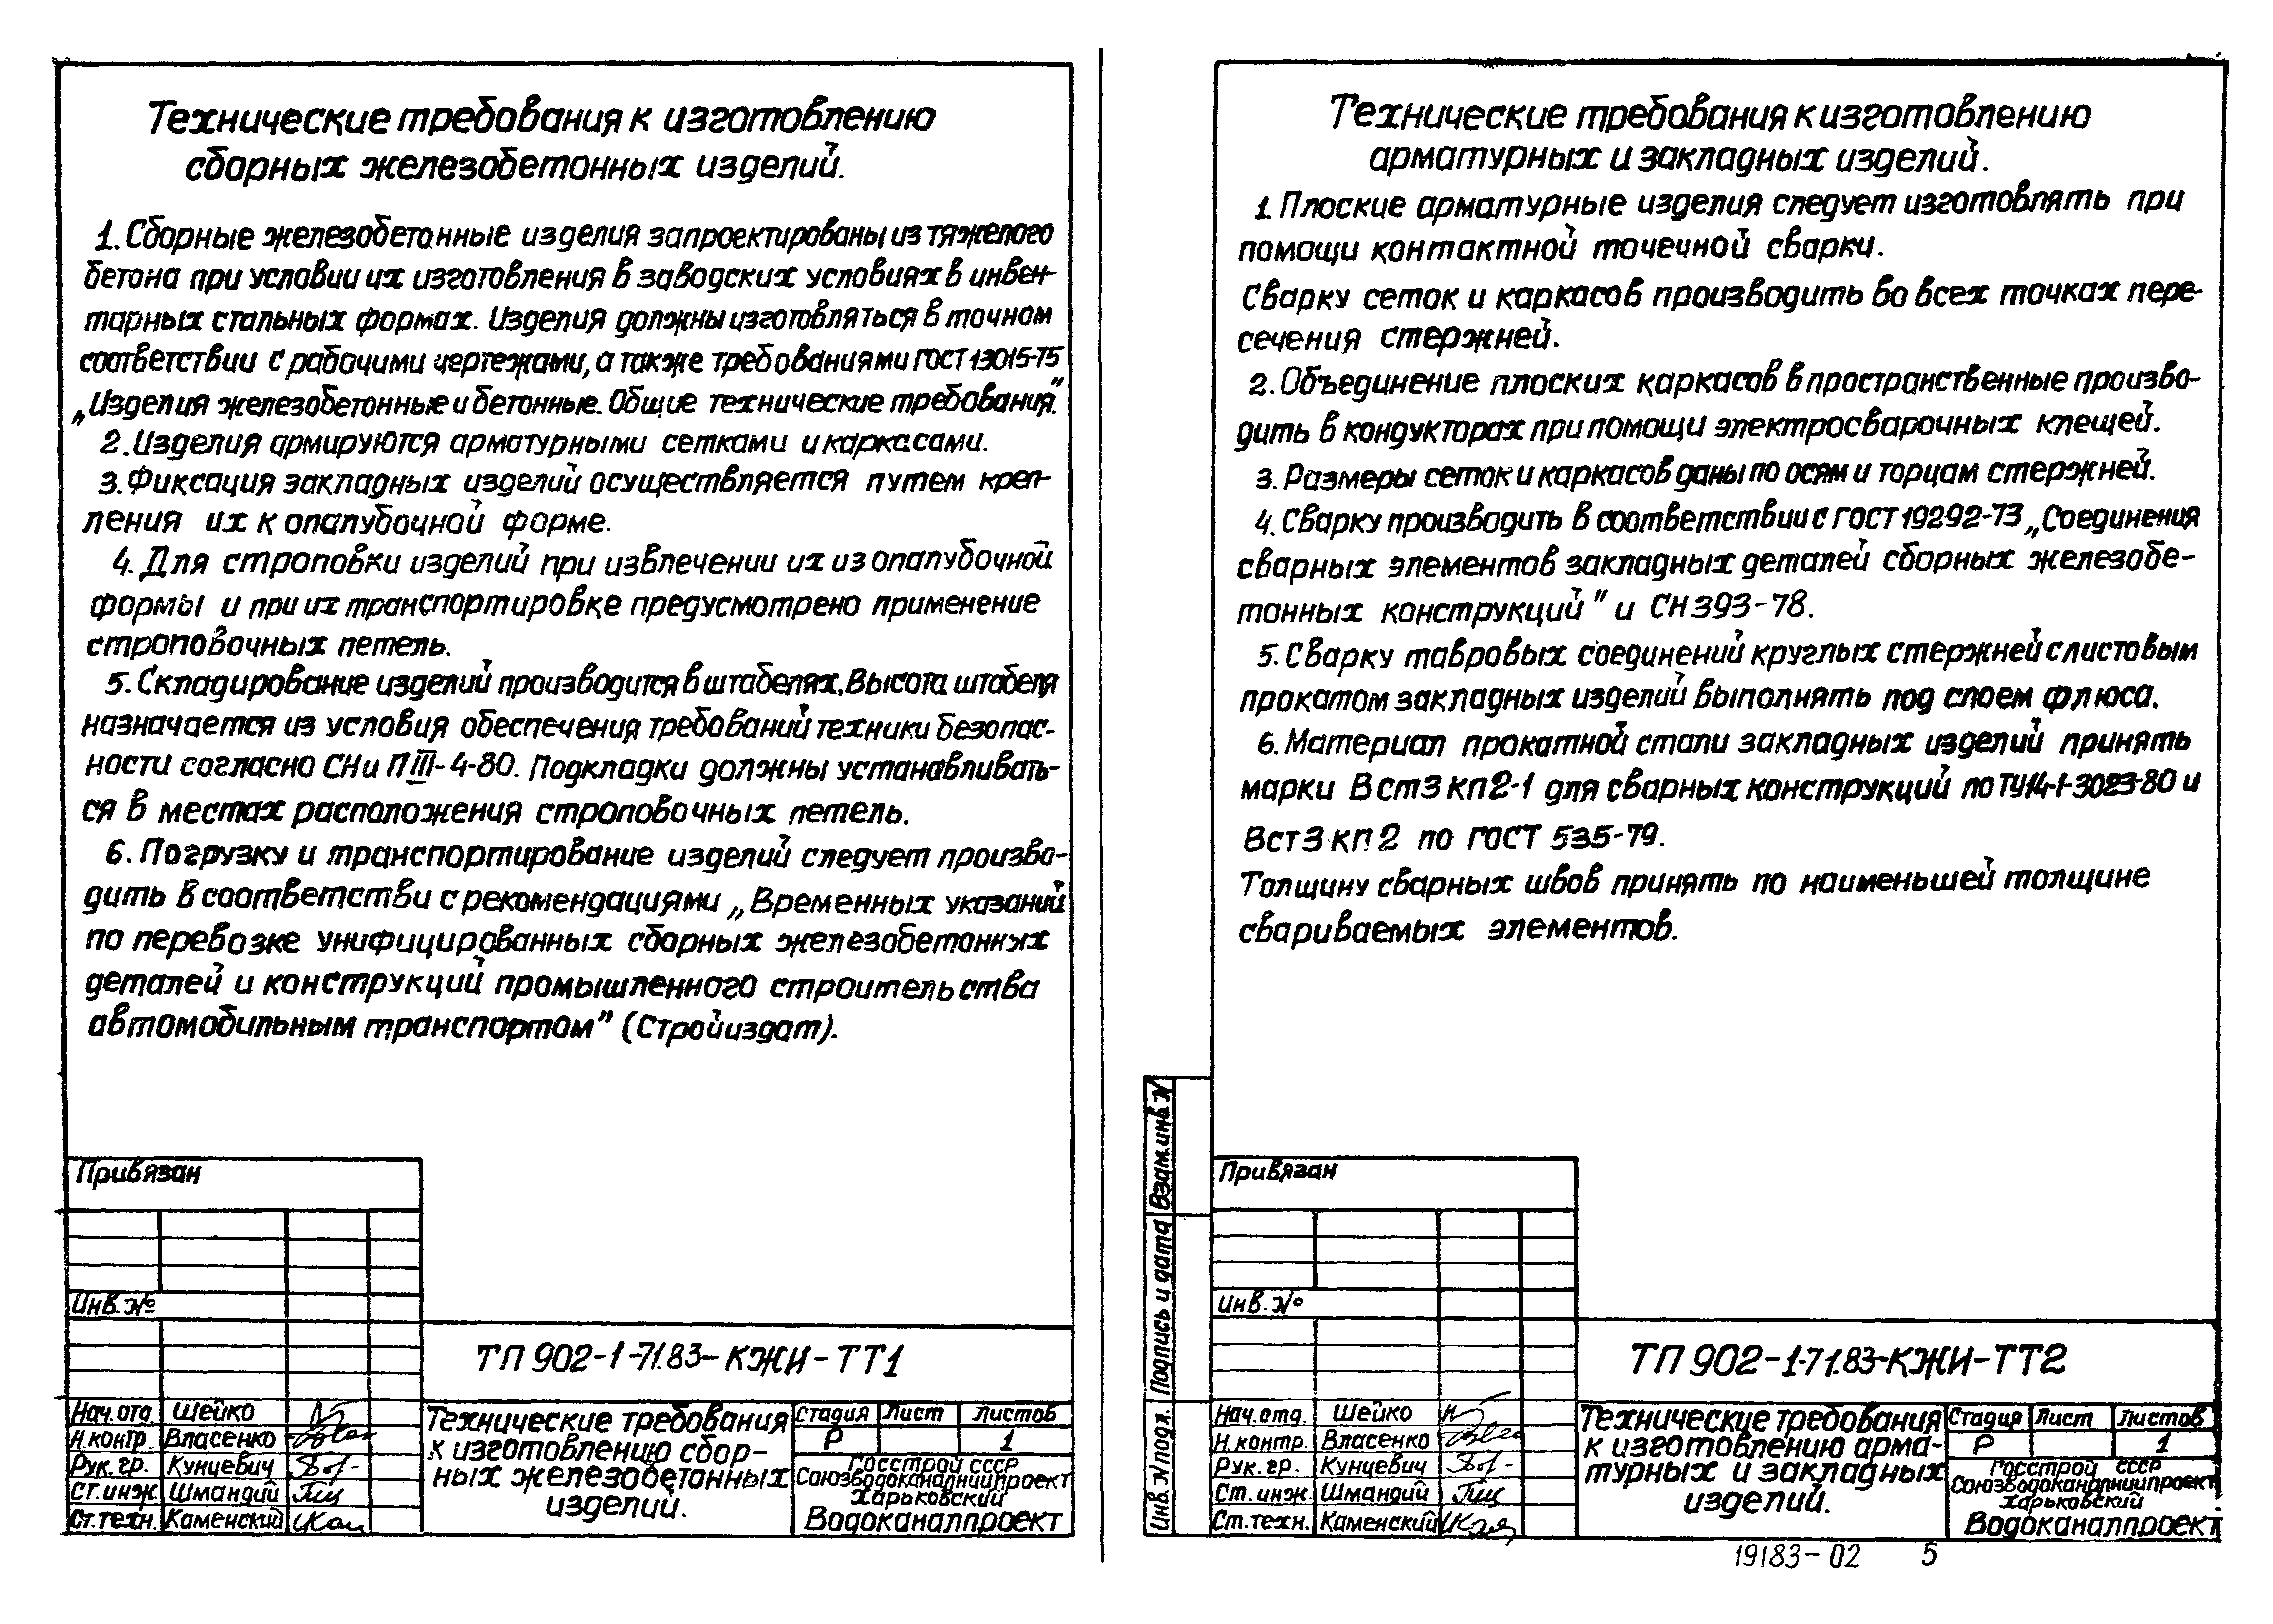 Технические требования к изготовлению
сборных железобетонных изделий.
1. Сборные железобетонные изделия запроектированы из тяжелого
бетона при условии их изготовления в заводских условиях в инвен-
тарных стальных формах. Изделия должны изготовляться в точном
соответствии с рабочими чертежами, а также требованиями ГОСТ 13015-75
„Изделия железобетонные и бетонные. Общие технические требования."
2. Изделия армируются арматурными сетками и каркасами.
3. Фиксация закладных изделий осуществляется путем креп-
ления их к опалубочной форме.
4. Для строповки изделий при извлечении их из опалубочной
формы и при их транспортировке предусмотрено применение
строповочных петель.
5. Складирование изделий производится в штабелях. Высота штабеля
назначается из условия обеспечения требований техники безопас-
ности согласно СНиП III-4-80. Подкладки должны устанавливать-
ся в местах расположения строповочных петель.
6. Погрузку и транспортирование изделий следует произво-
дить в соответстви с рекомендациями „Временных указаний
по перевозке унифицированных сборных железобетонных
деталей и конструкций промышленного строительства
автомобильным транспортом" (Стройиздат).
Привязан
Инв. №
ТП 902-1-71.83-КЖИ-ТТ1
Нач.отд. Шейко
Н.контр. Власенко
Рук.гр. Кунцевич
Ст.инж. Шмандий
Ст.техн. Каменский
Технические требования
к изготовлению сбор-
ных железобетонных
изделий.
Стадия Лист Листов
Р 1
Госстрой СССР
Союзводоканалниипроект
Харьковский
Водоканалпроект
Технические требования к изготовлению
арматурных и закладных изделий.
1. Плоские арматурные изделия следует изготовлять при
помощи контактной точечной сварки.
Сварку сеток и каркасов производить во всех точках пере-
сечения стержней.
2. Объединение плоских каркасов в пространственные произво-
дить в кондукторах при помощи электросварочных клещей.
3. Размеры сеток и каркасов даны по осям и торцам стержней.
4. Сварку производить в соответствии с ГОСТ 19292-73 „Соединения
сварных элементов закладных деталей сборных железобе-
тонных конструкций" и СН 393-78.
5. Сварку тавровых соединений круглых стержней с листовым
прокатом закладных изделий выполнять под слоем флюса.
6. Материал прокатной стали закладных изделий принять
марки ВСт3кп2-1 для сварных конструкций по ТУ14-1-3023-80 и
ВСт3кп2 по ГОСТ 535-79.
Толщину сварных швов принять по наименьшей толщине
свариваемых элементов.
Взам.инв.N
Подпись и дата
Инв.N подл.
Привязан
Инв. №
ТП 902-1-71.83-КЖИ-ТТ2
Нач.отд. Шейко
Н.контр. Власенко
Рук.гр. Кунцевич
Ст.инж. Шмандий
Ст.техн. Каменский
Технические требования
к изготовлению арма-
турных и закладных
изделий.
Стадия Лист Листов
Р 1
Госстрой СССР
Союзводоканалниипроект
Харьковский
Водоканалпроект
19183-02 5